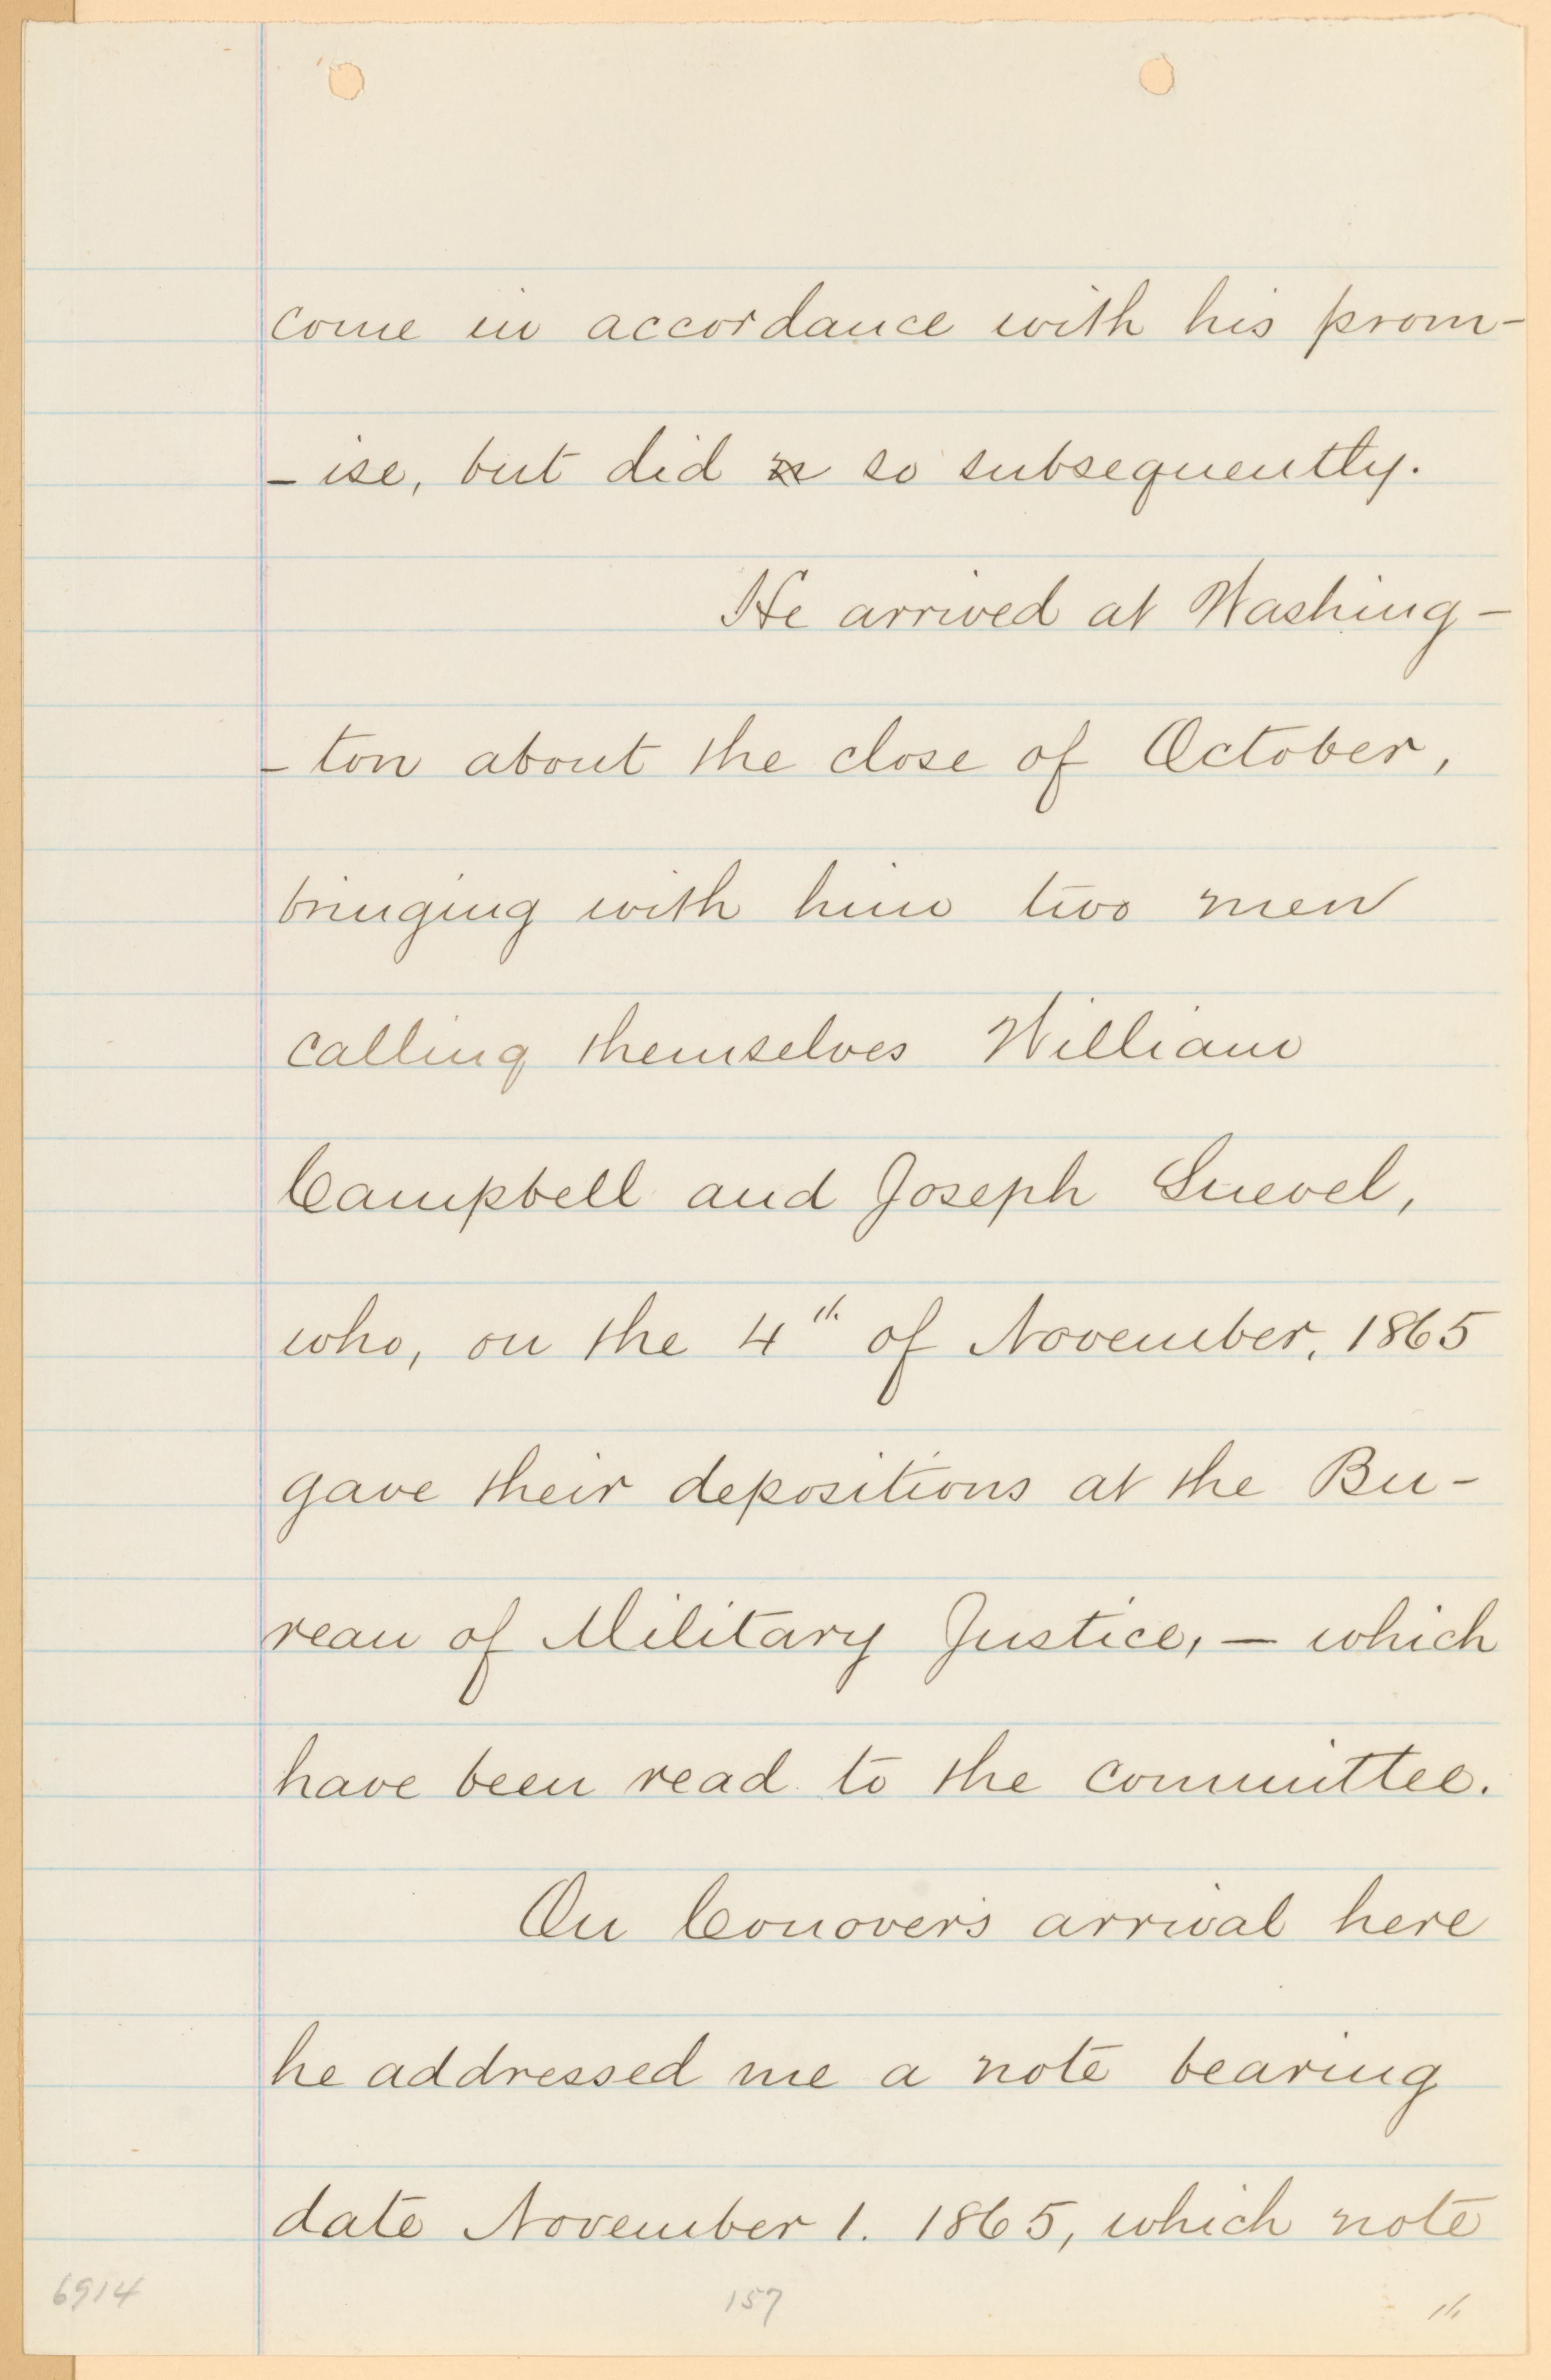 come in accordance with his prom-
-ise, but did so subsequently.
He arrived at Washing-
-ton about the close of October,
bringing with him two men
calling themselves William
Campbell and Joseph Snevel,
who, on the 4th of November, 1865
gave their depositions at the Bu-
reau of Military Justice, — which
have been read to the committee.
On Conover's arrival here
he addressed me a note bearing
date November 1. 1865, which note
6914
157